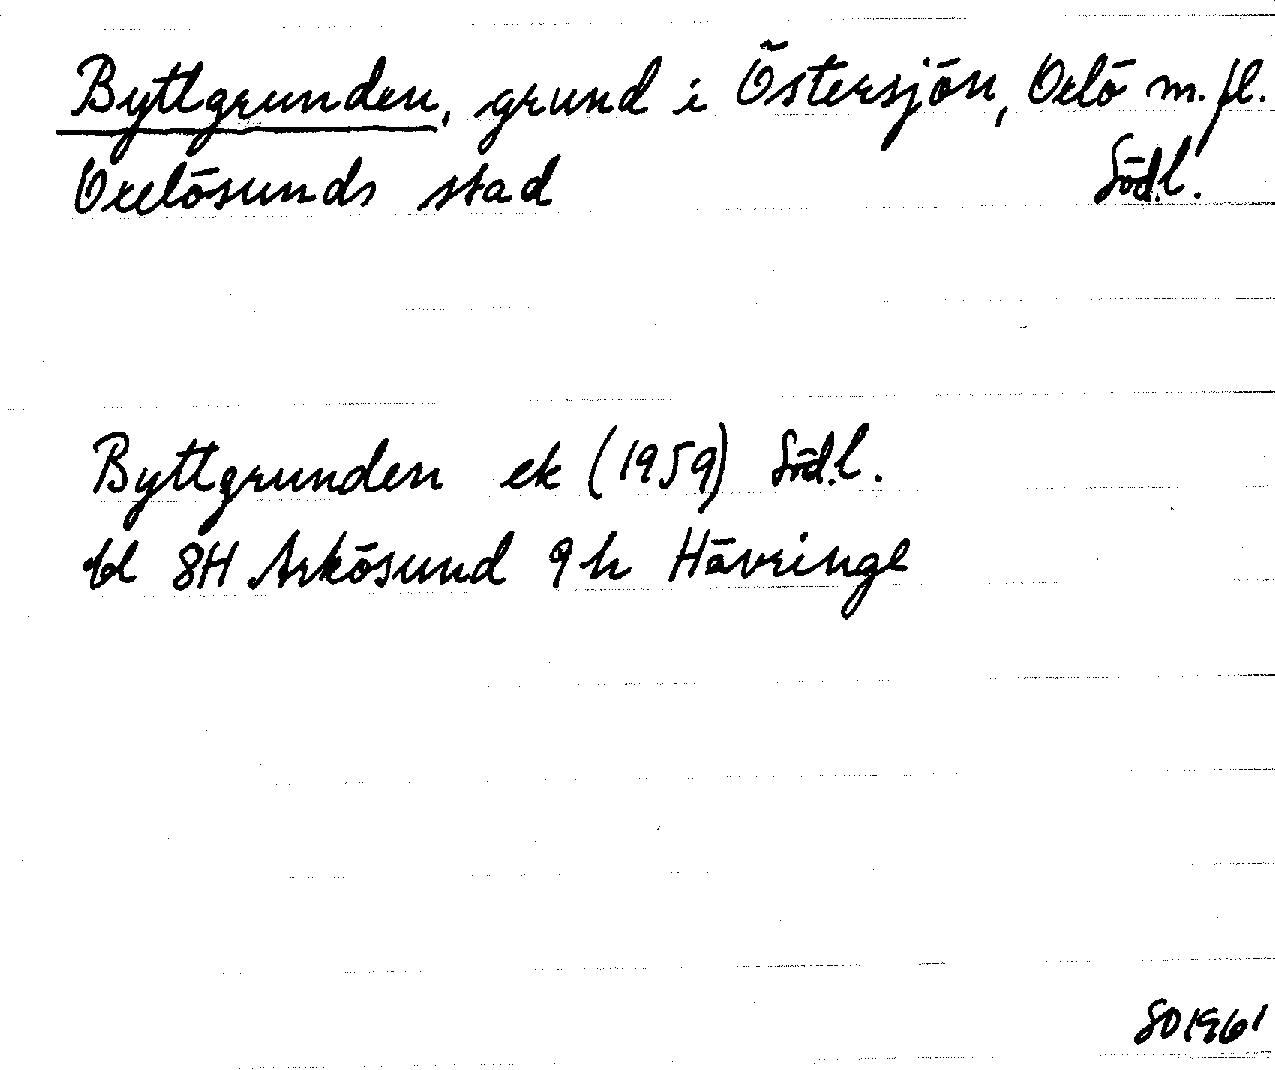 Byttgrunden, grund i Östersjön, Oxlö m. fl.
Oxelösunds stad Södl.
Byttgrunden ek (1959) Södl.
bl 8H Arkösund 9h Hävringe
SO 1961